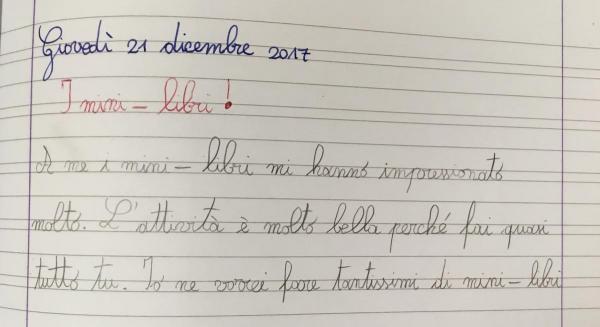 Giovedì 21 dicembre 2017
I mini - libri!
A me i mini - libri mi hanno impressionato
molto. L'attività è molto bella perché fai quasi
tutto tu. Io ne vorrei fare tantissimi di mini - libri